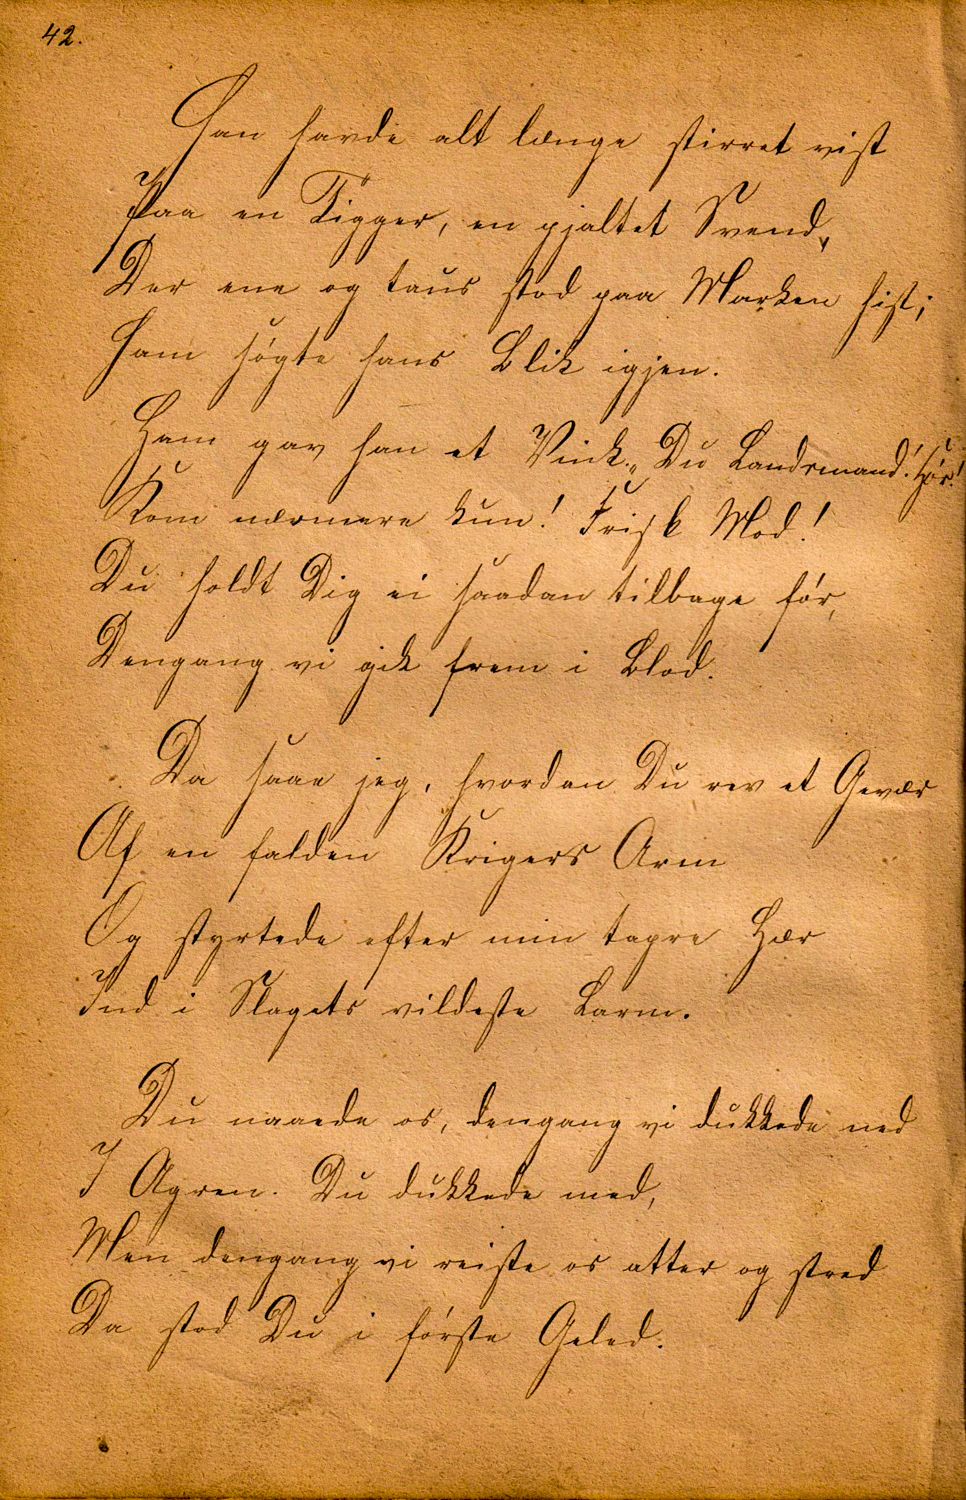 42.
Han havde alt længe stirret vist
Paa en Tigger, en pjaltet Svend,
Der ene og taus stod paa Marken hist;
Ham søgte hans Blik igjen.
Ham gav han et Vink. „Du Landsmand! Hør!
Kom nærmere kun! Frisk Mod!
Du holdt Dig ei saadan tilbage før,
Dengang vi gik frem i Blod.
Da saae jeg, hvordan Du rev et Gevær
Af en falden Krigers Arm
Og styrtede efter min tapre Hær
Ind i Slagets vildeste Larm.
Du naaede os, dengang vi dukkede ned
I Agren. Du dukkede med,
Men dengang vi reiste os atter og stred
Da stod Du i første Geled.